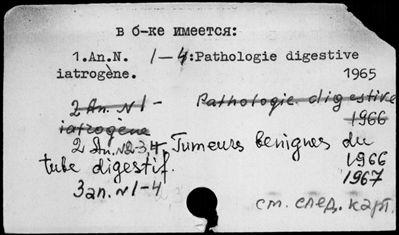 в б-ке имеется:
1.An.N. 1-4:Pathologie digestive
iatrogène. 1965
2 An. N1- Pathologie digestive
iatrogène 1966
2 An. N2-3.4. Tumeurs benignes du
tube digestif. 1966
3an. N1-4 1967
см. след. карт.